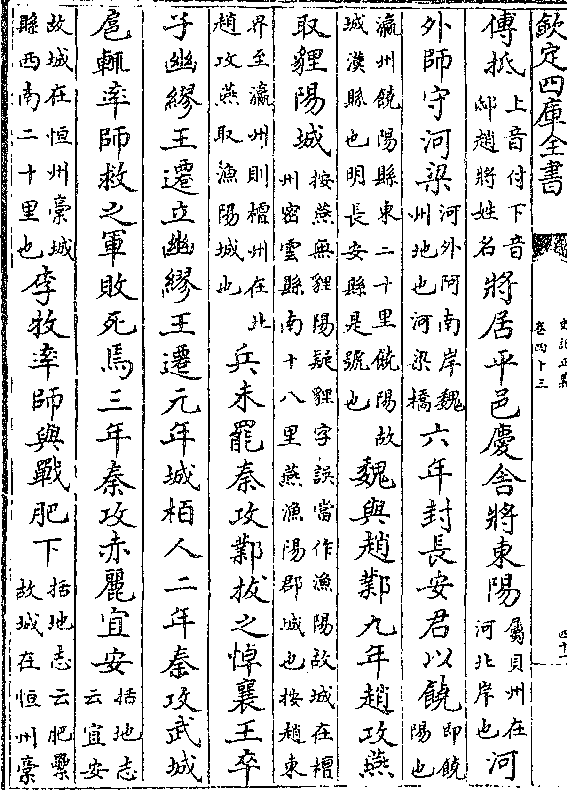 欽定四庫全書
史記正義
卷四十三
傅抵上音付下音邸趙將姓名將居平邑慶舍將東陽屬貝州在河北岸也河
外師守河梁河外河南岸魏州地也河梁橋六年封長安君以饒即饒陽也
瀛州饒陽縣東二十里饒陽故城漢縣也明長安縣是號也魏與趙鄴九年趙攻燕
取貍陽城按燕無貍陽疑貍字誤當作漁陽故城在檀州密雲縣南十八里燕漁陽郡城也按趙東
界至瀛州則檀州在北趙攻燕取漁陽城也兵未罷秦攻鄴拔之悼襄王卒
子幽繆王遷立幽繆王遷元年城栢人二年秦攻武城
扈輒率師救之軍敗死焉三年秦攻赤麗宜安括地志云宜安
故城在恒州槀城縣西南二十里也李牧率師與戰肥下括地志云肥纍故城在恒州槀